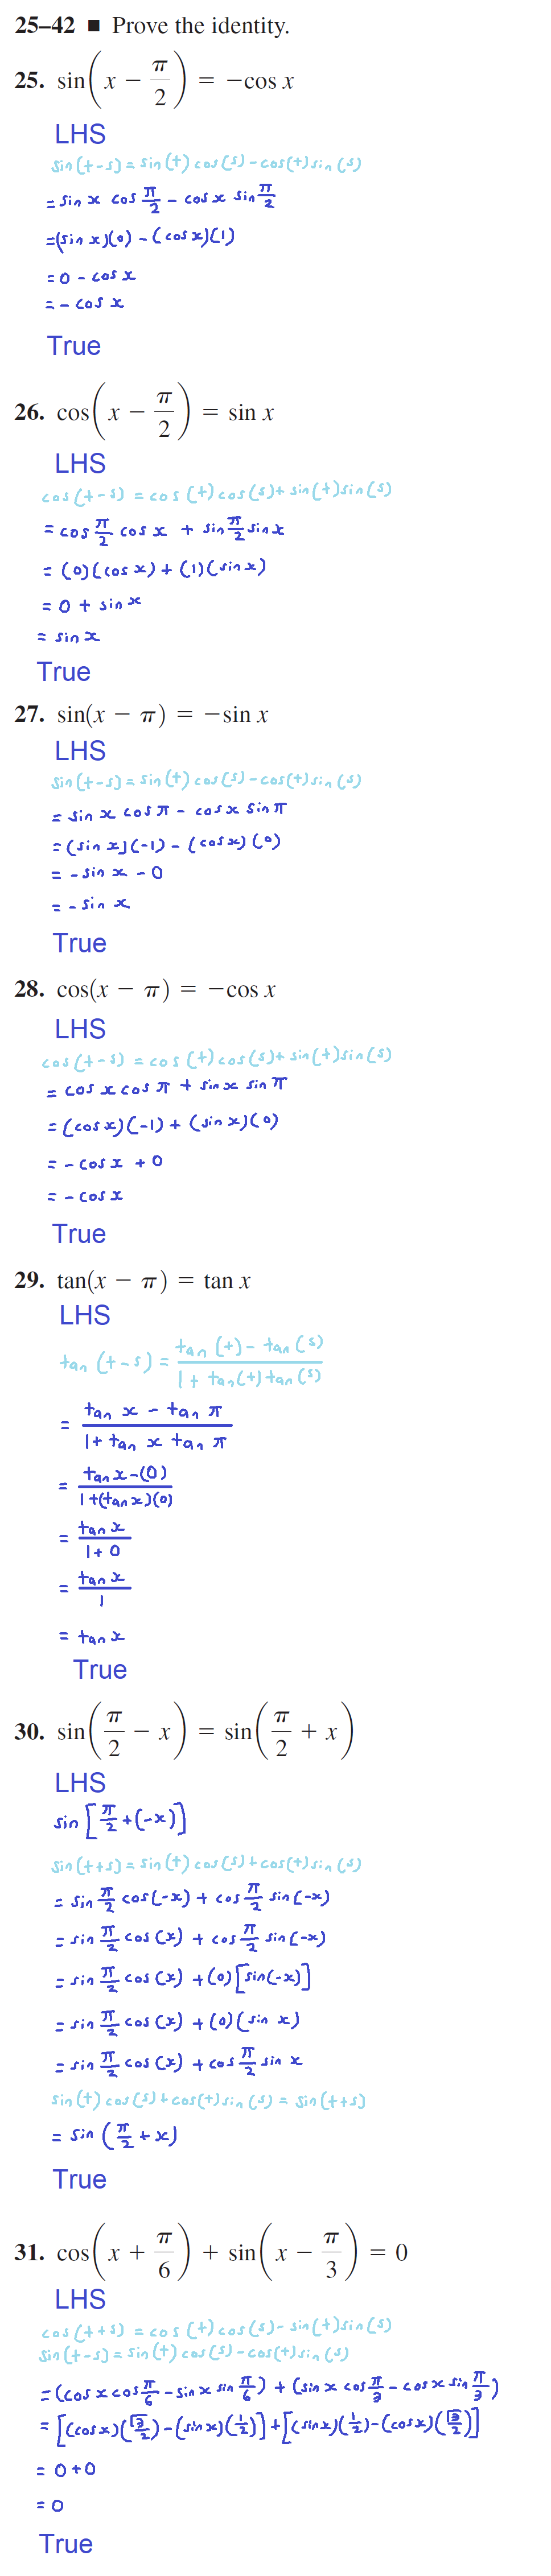 25–42 ■ Prove the identity.
25. sin(x − π/2) = −cos x
LHS
sin(t-s) = sin(t) cos(s) - cos(t) sin(s)
= sin x cos π/2 - cos x sin π/2
= (sin x)(0) - (cos x)(1)
= 0 - cos x
= - cos x
True
26. cos(x − π/2) = sin x
LHS
cos(t-s) = cos(t) cos(s) + sin(t) sin(s)
= cos π/2 cos x + sin π/2 sin x
= (0)(cos x) + (1)(sin x)
= 0 + sin x
= sin x
True
27. sin(x − π) = −sin x
LHS
sin(t-s) = sin(t) cos(s) - cos(t) sin(s)
= sin x cos π - cos x sin π
= (sin x)(-1) - (cos x)(0)
= - sin x - 0
= - sin x
True
28. cos(x − π) = −cos x
LHS
cos(t-s) = cos(t) cos(s) + sin(t) sin(s)
= cos x cos π + sin x sin π
= (cos x)(-1) + (sin x)(0)
= - cos x + 0
= - cos x
True
29. tan(x − π) = tan x
LHS
tan(t-s) = (tan(t) - tan(s))/(1 + tan(t) tan(s))
= (tan x - tan π)/(1 + tan x tan π)
= (tan x - (0))/(1 + (tan x)(0))
= tan x/(1 + 0)
= tan x/1
= tan x
True
30. sin(π/2 − x) = sin(π/2 + x)
LHS
sin [π/2 + (-x)]
sin(t+s) = sin(t) cos(s) + cos(t) sin(s)
= sin π/2 cos(-x) + cos π/2 sin(-x)
= sin π/2 cos(x) + cos π/2 sin(-x)
= sin π/2 cos(x) + (0)[sin(-x)]
= sin π/2 cos(x) + (0)(sin x)
= sin π/2 cos(x) + cos π/2 sin x
sin(t) cos(s) + cos(t) sin(s) = sin(t+s)
= sin (π/2 + x)
True
31. cos(x + π/6) + sin(x − π/3) = 0
LHS
cos(t+s) = cos(t) cos(s) - sin(t) sin(s)
sin(t-s) = sin(t) cos(s) - cos(t) sin(s)
= (cos x cos π/6 - sin x sin π/6) + (sin x cos π/3 - cos x sin π/3)
= [(cos x)(√3/2) - (sin x)(1/2)] + [(sin x)(1/2) - (cos x)(√3/2)]
= 0 + 0
= 0
True